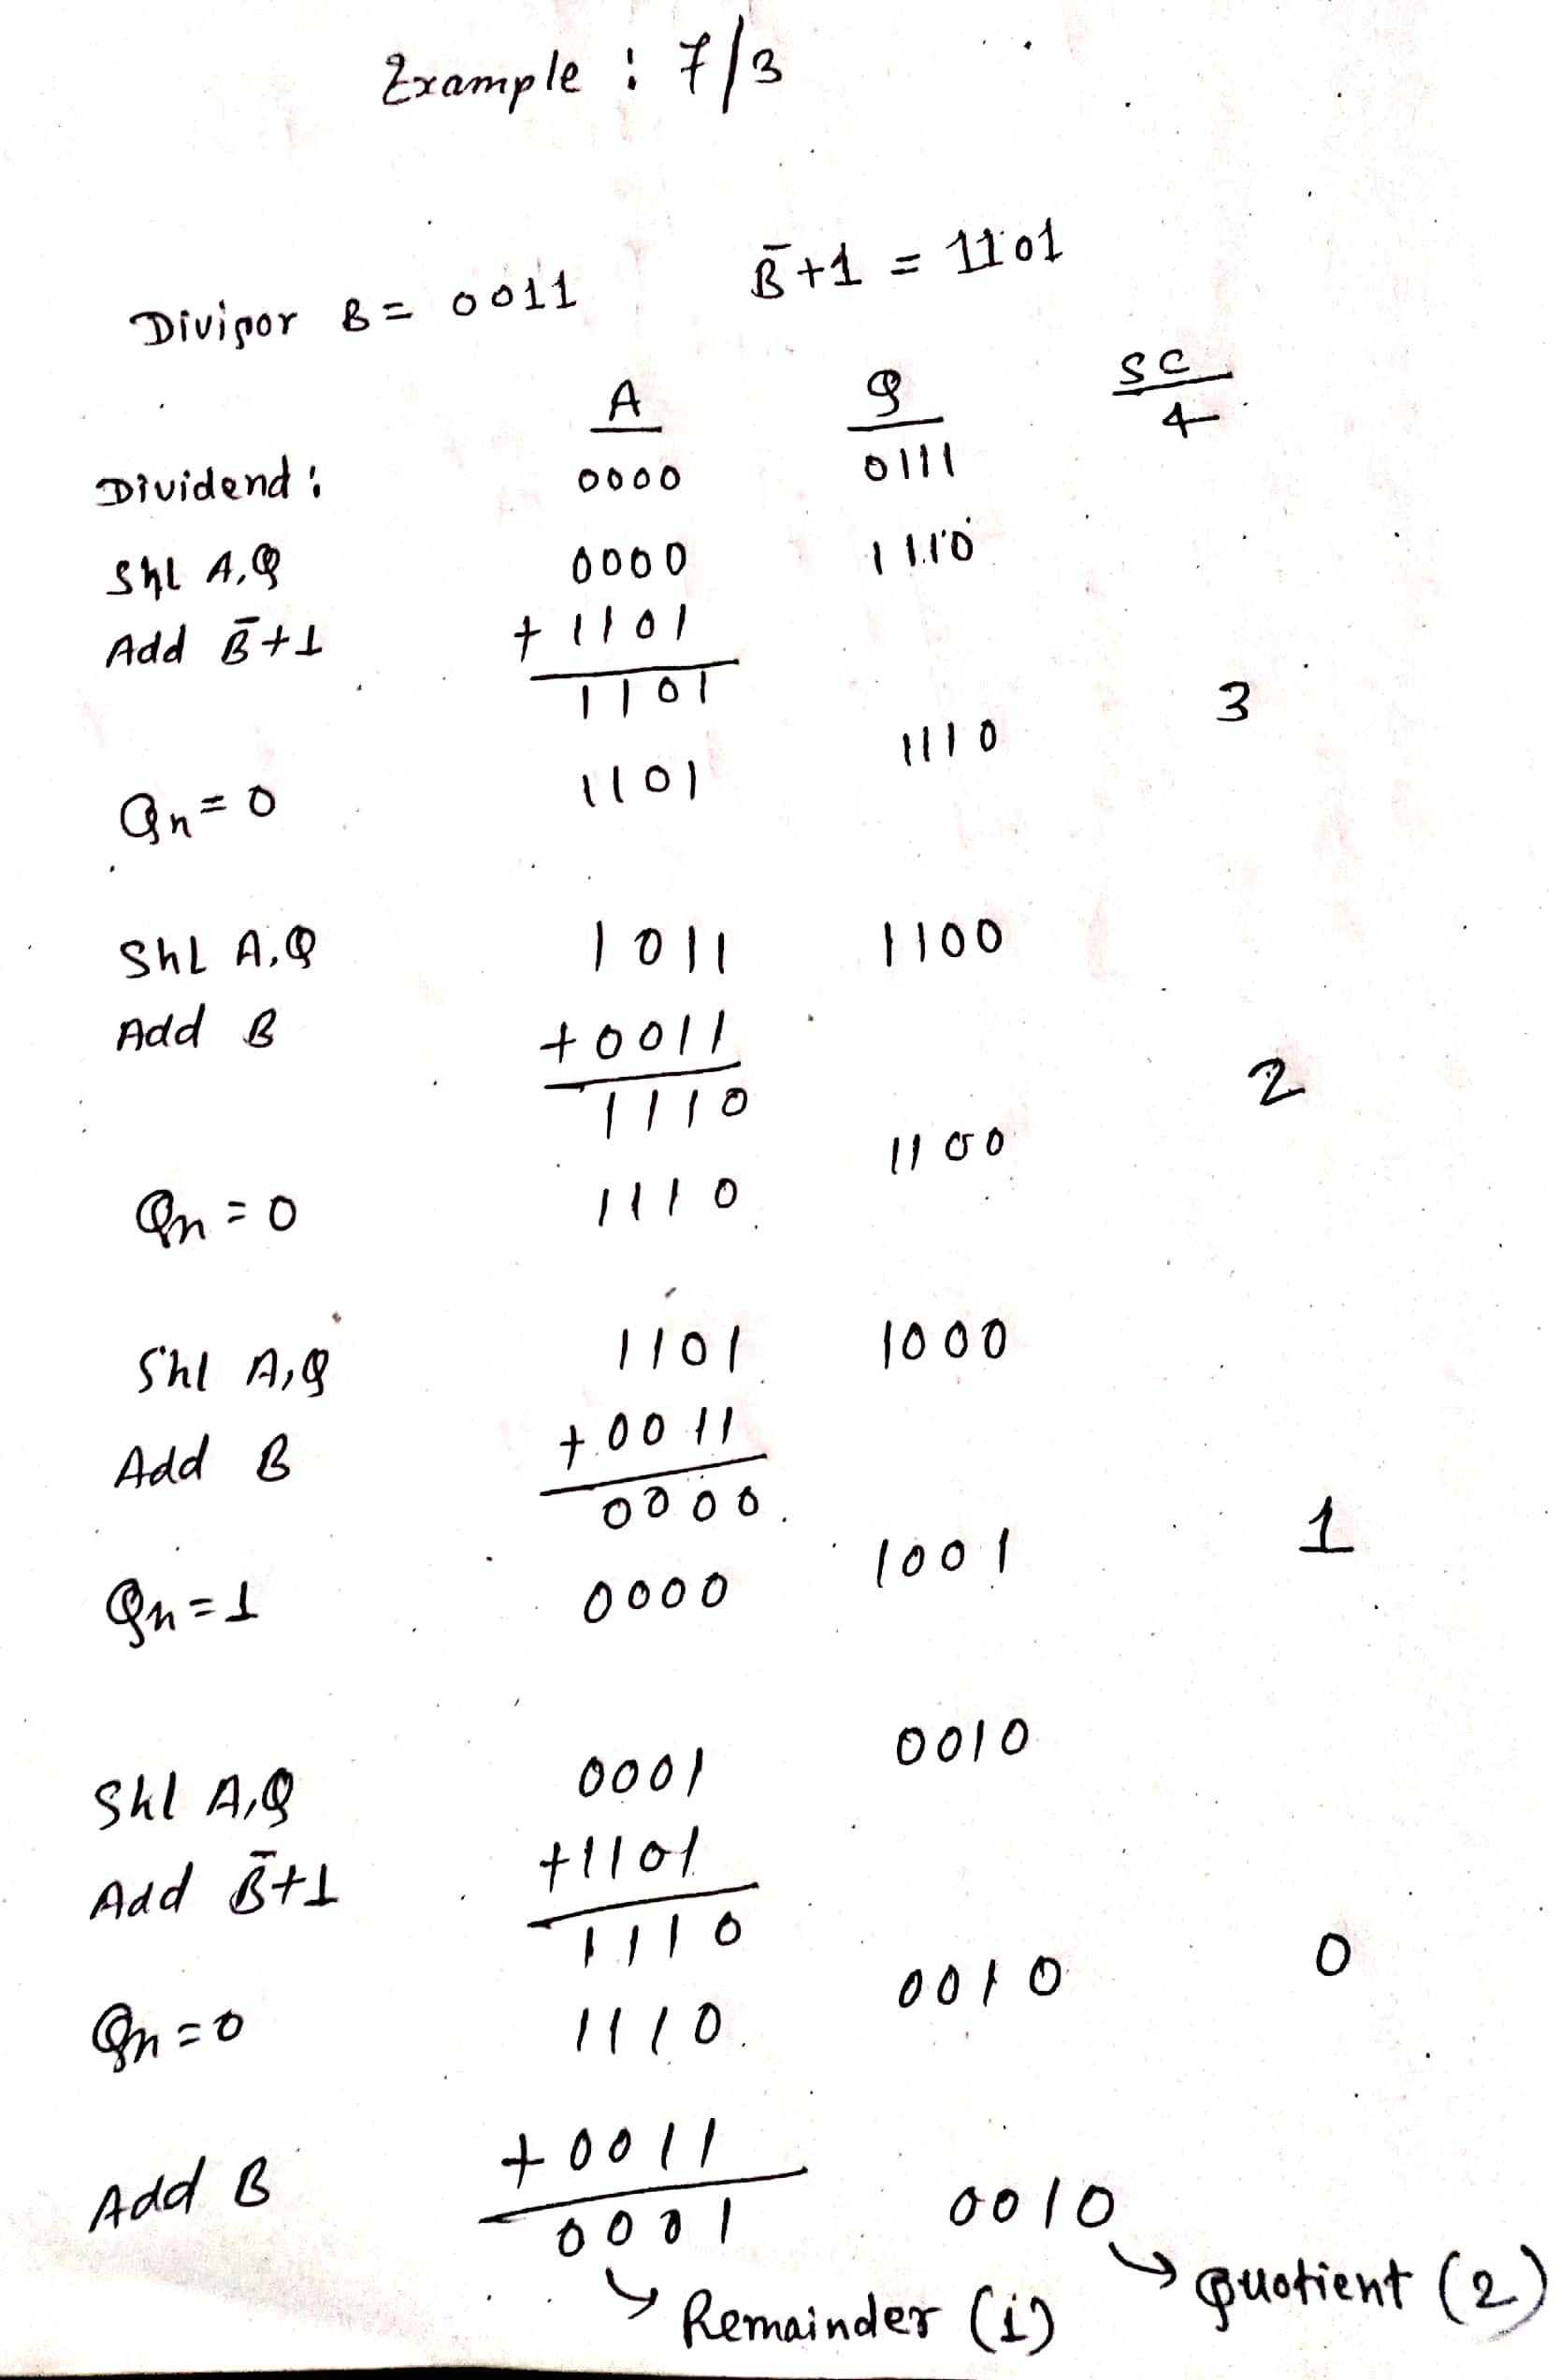 Example : 7/3
Divisor B = 0011 B̄+1 = 1101
A Q SC
4
Dividend : 0000 0111
Shl A,Q 0000 1110
Add B̄+1 + 1101
1101
1110 3
Qn = 0 1101
Shl A,Q 1011 1100
Add B +0011
1110 2
1100
Qn = 0 1110
Shl A,Q 1101 1000
Add B +0011
0000
1001 1
Qn = 1 0000
0010
Shl A,Q 0001
Add B̄+1 +1101
1110
0010 0
Qn = 0 1110
Add B +0011
0001 0010
Remainder (1) Quotient (2)